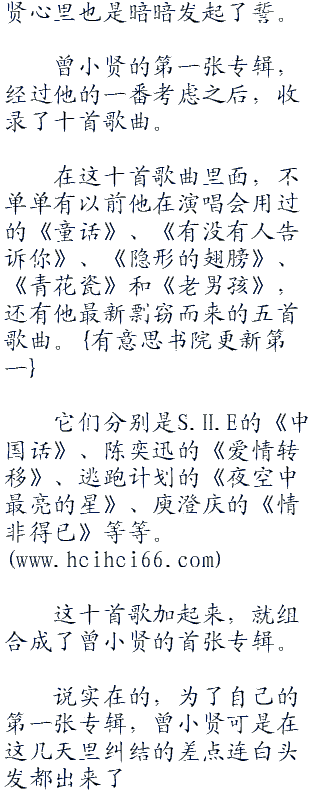 贤心里也是暗暗发起了誓。
曾小贤的第一张专辑，
经过他的一番考虑之后，收
录了十首歌曲。
在这十首歌曲里面，不
单单有以前他在演唱会用过
的《童话》、《有没有人告
诉你》、《隐形的翅膀》、
《青花瓷》和《老男孩》，
还有他最新剽窃而来的五首
歌曲。{有意思书院更新第
一}
它们分别是S.H.E的《中
国话》、陈奕迅的《爱情转
移》、逃跑计划的《夜空中
最亮的星》、庾澄庆的《情
非得已》等等。
(www.hcihci66.com)
这十首歌加起来，就组
合成了曾小贤的首张专辑。
说实在的，为了自己的
第一张专辑，曾小贤可是在
这几天里纠结的差点连白头
发都出来了